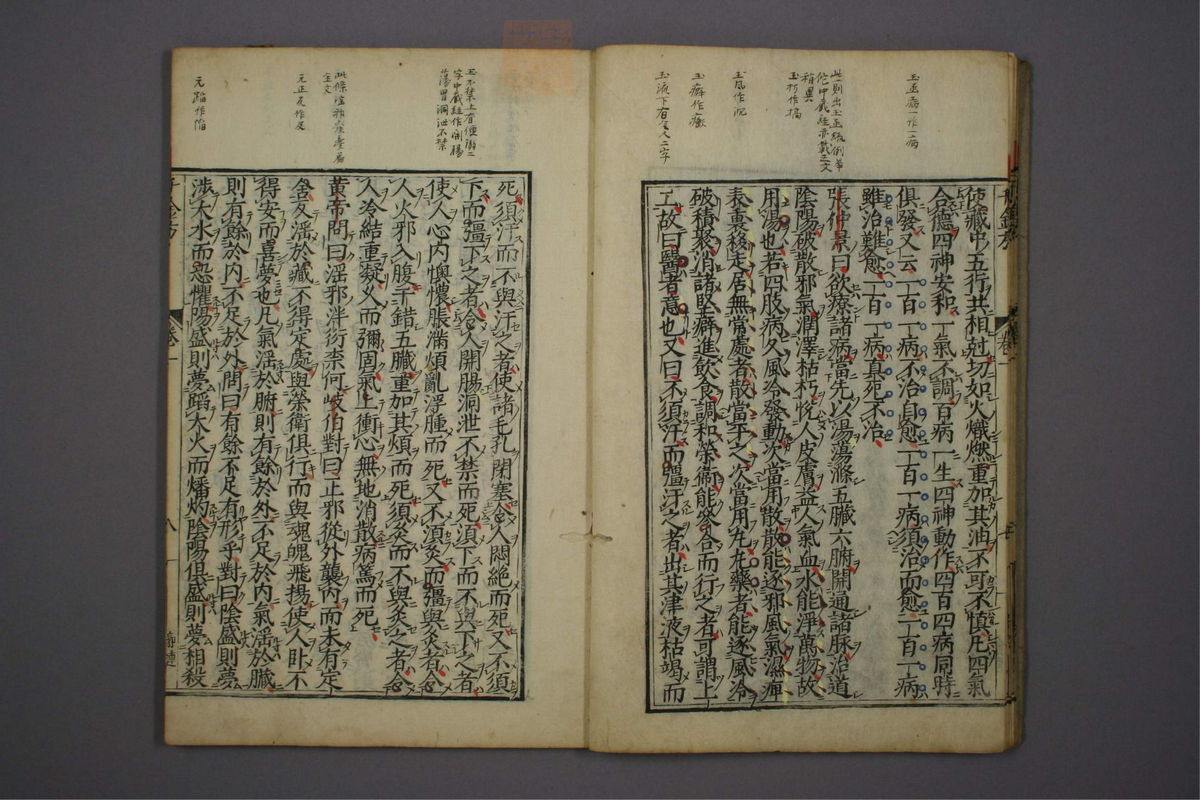 玉無病一作一病
此一則出玉函總例華
佗中藏經亦載之文
稍異
玉朽作槁
玉風作沉
玉癖作癥
玉液下有令人二字
使藏中五行共相尅切如火熾燃重加其油不可不慎凡四氣
合德四神安和一氣不調百病一生四神動作四百四病同時
俱發又云一百一病不治自愈一百一病須治而愈一百一病
雖治難愈一百一病真死不治
張仲景曰欲療諸病當先以湯蕩滌五臟六腑開通諸脉治道
陰陽破散邪氣潤澤枯朽悅人皮膚益人氣血水能淨萬物故
用湯也若四肢病久風冷發動次當用散散能逐邪風氣濕痺
表裏移走居無常處者散當平之次當用丸丸藥者能逐風冷
破積聚消諸堅癖進飲食調和榮衛能參合而行之者可謂上
工故曰醫者意也又曰不須汗而彊汗之者出其津液枯竭而
卷一
玉不禁上有便溺二
字中藏經作開腸
蕩胃洞泄不禁
主文
元正反作及
元蹈作陷
死須汗而不與汗之者使諸毛孔閉塞令人悶絕而死又不須
下而彊下之者令人開腸洞泄不禁而死須下而不與下之者
使人心內懊憹脹滿煩亂浮腫而死又不須灸而彊與灸者令
人火邪入腹干錯五臟重加其煩而死須灸而不與灸之者令
人冷結重凝久而彌固氣上衝心無地消散病篤而死
黃帝問曰淫邪泮衍柰何岐伯對曰正邪從外襲內而未有定
舍反淫於藏不得定處與榮衛俱行而與魂魄飛揚使人臥不
得安而喜夢也凡氣淫於腑則有餘於外不足於內氣淫於臟
則有餘於內不足於外問曰有餘不足有形乎對曰陰盛則夢
涉大水而恐懼陽盛則夢蹈大火而燔灼陰陽俱盛則夢相殺
千金方
卷一
八